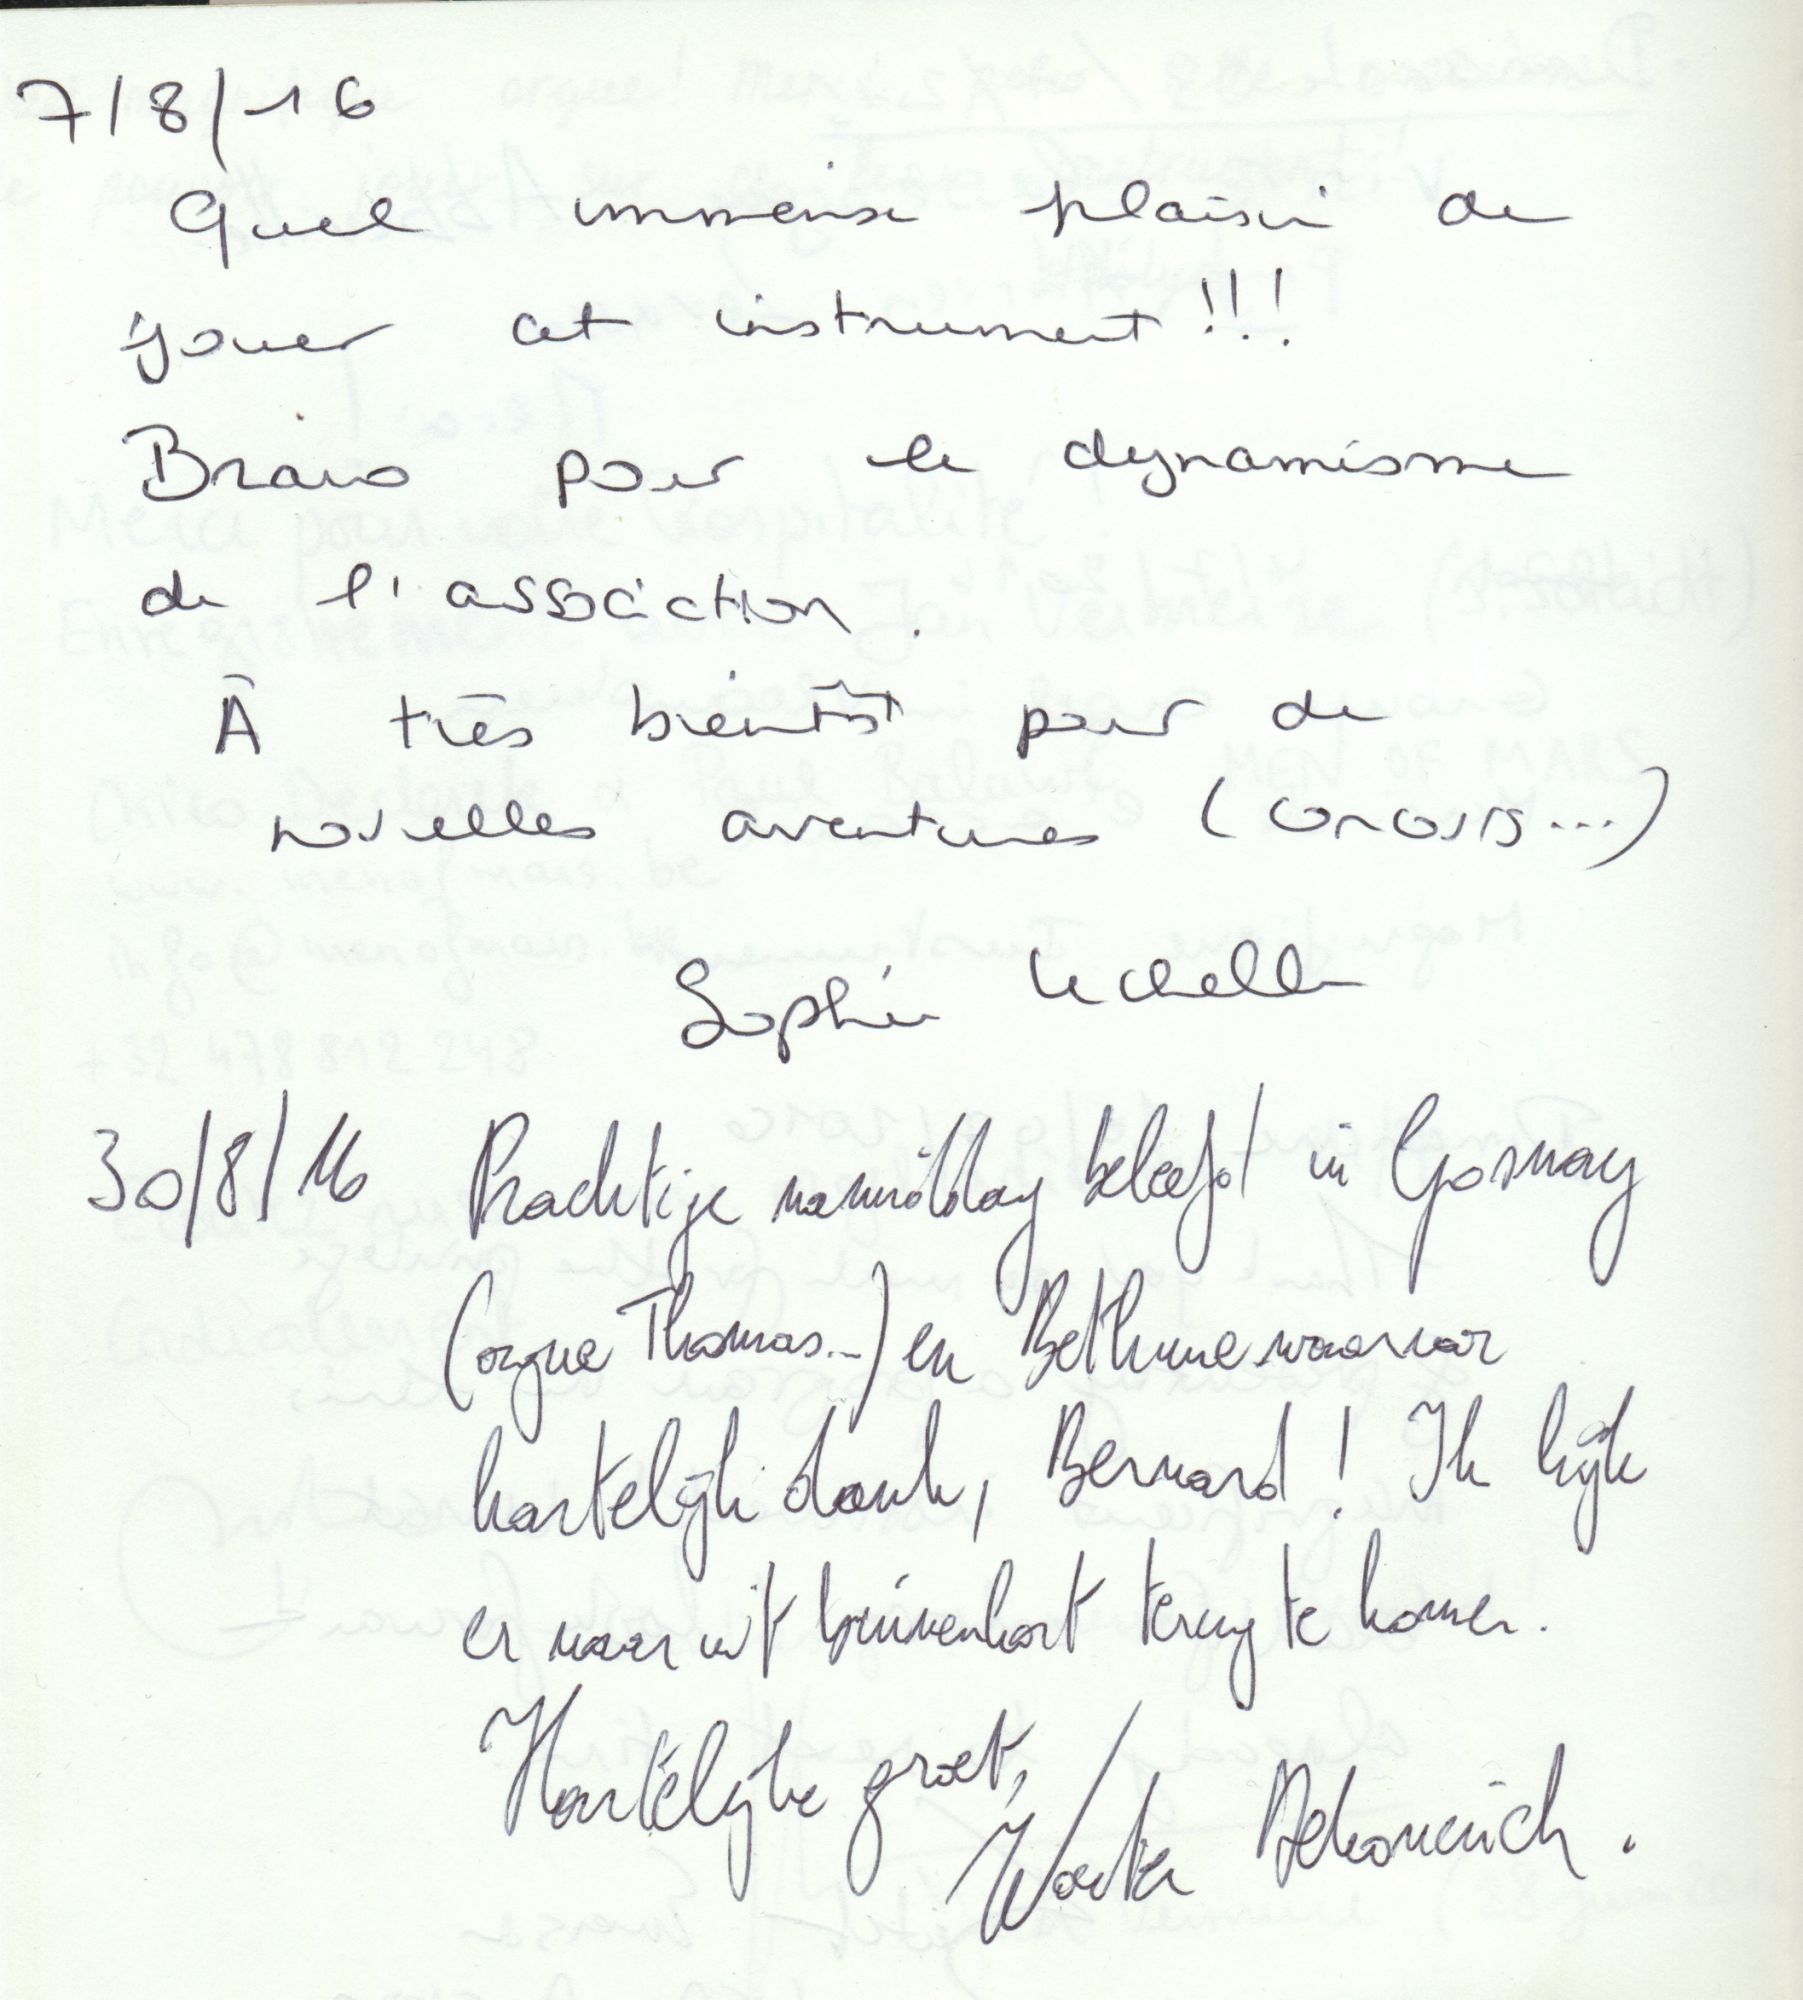 7/8/16
Quel immense plaisir de
jouer cet instrument !!!
Bravo pour le dynamisme
de l'association.
À très bientôt pour de
nouvelles aventures (concours...)
Sophie Lechelle
30/8/16 Prachtige namiddag beleefd in Gosnay
(orgue Thomas...) en Bethune waarvoor
hartelijk dank, Bernard! Ik kijk
er naar uit binnenkort terug te komen.
Hartelijke groet,
Wouter Dekoninck.